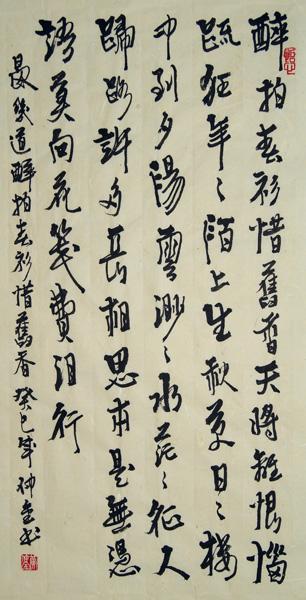 醉拍春衫惜舊香天將離恨惱
疏狂年々陌上生秋草日々樓
中到夕陽雲渺々水茫々征人
歸路許多長相思本是無憑
語莫向花箋費泪行
晏幾道醉拍春衫惜舊香癸巳年书